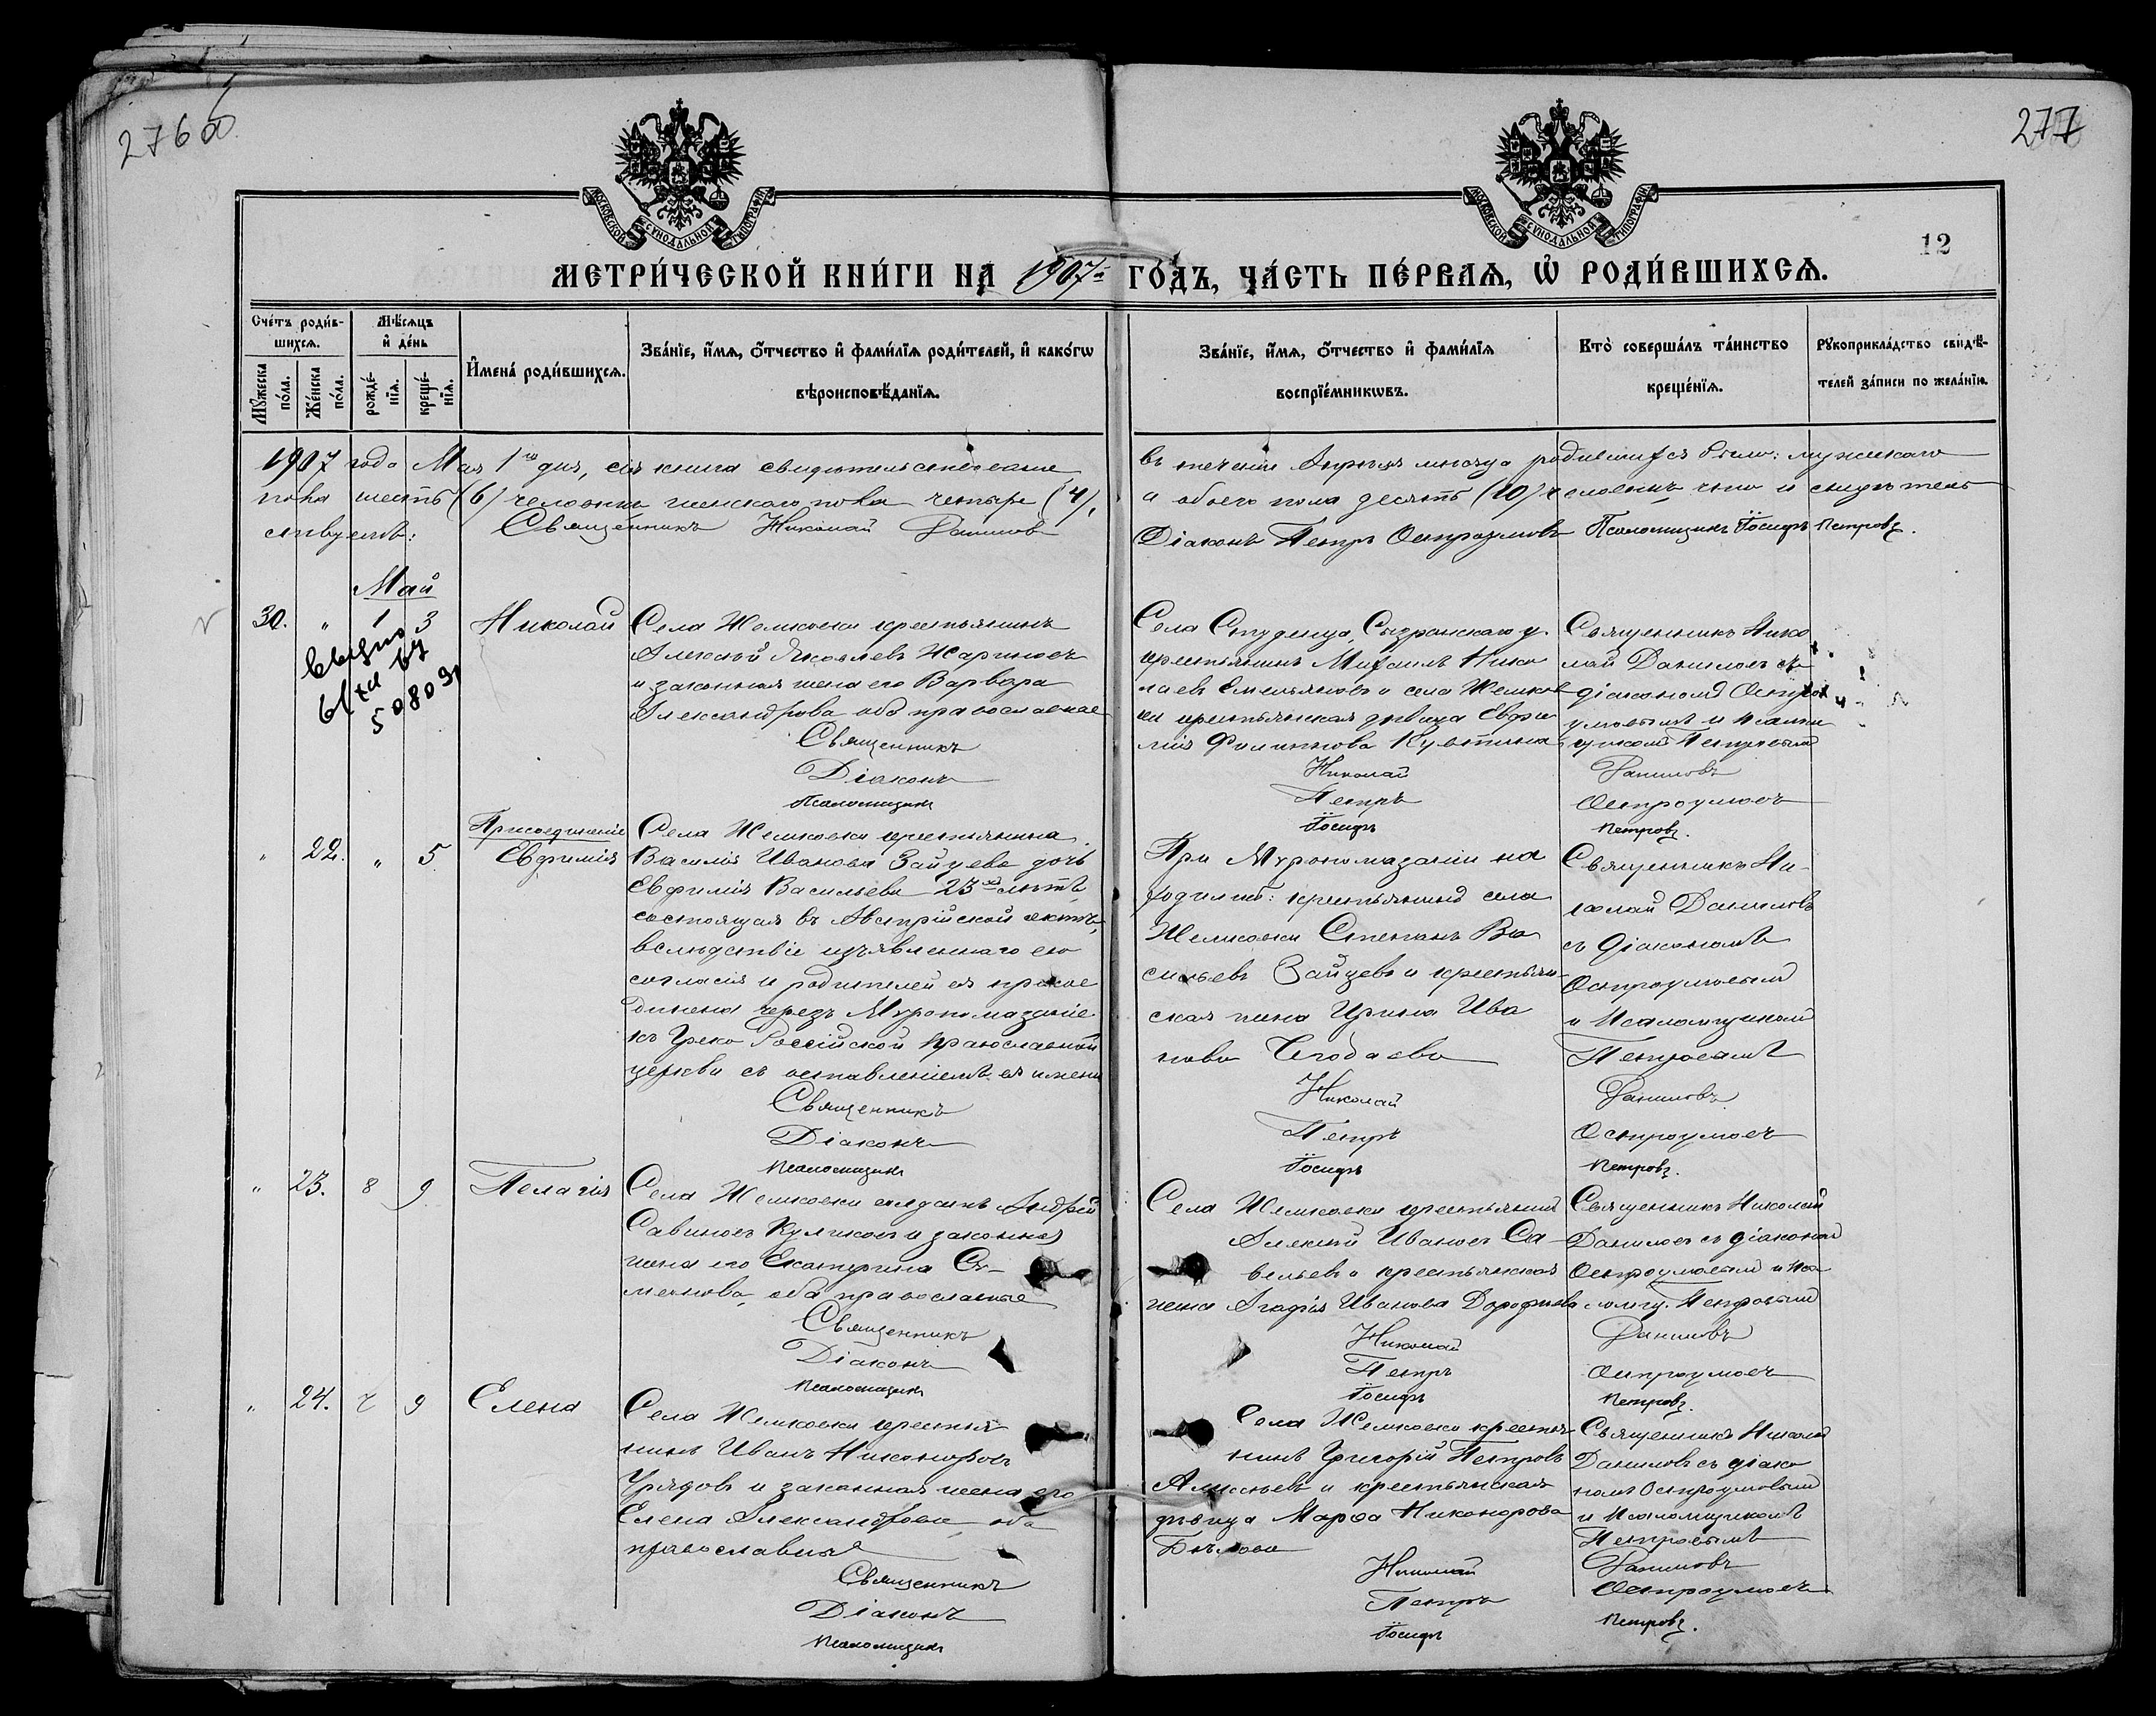 276 об
277
МОСКОВСКОЙ СУНОДАЛЬНОЙ ТИПОГРАФІИ
МОСКОВСКОЙ СУНОДАЛЬНОЙ ТИПОГРАФІИ
12
МЕТРИ́ЧЕСКОЙ КНИ́ГИ НА 1907й ГО́ДЪ, ЧА́СТЬ ПЕ́РВАѦ, Ѡ҆ РОДИ́ВШИХСѦ.
Сче́тъ роди́в-
шихсѧ.
Мꙋ́жеска по́ла.
Же́нска по́ла.
Мѣ́сѧцъ
и҆ де́нь
рожде́-
нїѧ.
креще́-
нїѧ.
И҆мена́ роди́вшихсѧ.
Зва́нїе, и҆́мѧ, ѻ҆́тчество и҆ фами́лїѧ роди́телей, и҆ како́гѡ
вѣроисповѣ́данїѧ.
Зва́нїе, и҆́мѧ, ѻ҆́тчество и҆ фами́лїѧ
воспрїе́мникѡвъ.
Кто̀ соверша́лъ та́инство
креще́нїѧ.
Рꙋкоприкла́дство свидѣ́-
телей за́писи по жела́нїю.
1907 года Мая 1го дня, сія книга свидѣтельствована
въ теченіи Апрѣля мѣсяца родившихся было: мужскаго
пола шесть (6) человѣкъ женскаго пола четыре (4),
а обоего пола десять (10) человѣкъ что и свидѣтель
ствуетъ: Священникъ Николай Даниловъ
Діаконъ Петръ Остроумовъ Псаломщикъ Іосифъ Петровъ.
Май
30. " 1 3 Николай
Села Жемковки крестьянинъ
Алексѣй Яковлевъ Жариновъ
и законная жена его Варвара
Александрова оба православные
Священникъ
Діаконъ
Псаломщикъ
50803
Села Студенца, Сызранскаго у.
крестьянинъ Михаилъ Нико
лаевъ Емельяновъ и села Жемков
ки крестьянская дѣвица Евфи
мія Филиппова
Николай
Петръ
Іосифъ
Священникъ Нико
лай Даниловъ съ
діакономъ Остро
умовымъ и псалом
щикомъ Петровымъ
Даниловъ
Остроумовъ
Петровъ.
" 22. " 5 Присоединеніе
Евфимія
Села Жемковки крестьянина
Василія Иванова Зайцева дочь
Евфимія Васильева 23хъ лѣтъ,
состоящая въ Австрійской сектѣ,
вслѣдствіе изъявленнаго ею
согласія и родителей ея присое
динена чрезъ Мѵропомазаніе
къ Греко Россійской Православной
церкви съ оставленіемъ ея имени
Священникъ
Діаконъ
Псаломщикъ
При Мѵропомазаніи на
ходились: крестьянинъ села
Жемковки Степанъ Ва
сильевъ Зайцевъ и крестьян-
ская жена Ирина Ива
нова Чегодаева
Николай
Петръ
Іосифъ
Священникъ Ни-
колай Даниловъ
съ діакономъ
Остроумовымъ
и Псаломщикомъ
Петровымъ
Даниловъ
Остроумовъ
Петровъ.
" 23. 8 9 Пелагія
Села Жемковки солдатъ Андрей
Савиновъ Куликовъ и законная
жена его Екатерина Се-
менова, оба православные
Священникъ
Діаконъ
Псаломщикъ
Села Жемковки крестьянинъ
Алексѣй Ивановъ Са-
вельевъ и крестьянская
жена Агафія Иванова Дорофеева
Николай
Петръ
Іосифъ
Священникъ Николай
Даниловъ съ діакономъ
Остроумовымъ и пса
ломщ. Петровымъ
Даниловъ
Остроумовъ
Петровъ.
" 24. 7 9 Елена
Села Жемковки крестья
нинъ Иванъ Никоноровъ
Урядовъ и законная жена его
Елена Александрова, оба
православные
Священникъ
Діаконъ
Псаломщикъ
Села Жемковки крестья
нинъ Григорій Петровъ
и крестьянская
дѣвица Марѳа Никонорова
Николай
Петръ
Іосифъ
Священникъ Николай
Даниловъ съ діако
номъ Остроумовымъ
и Псаломщикомъ
Петровымъ
Даниловъ
Остроумовъ
Петровъ.